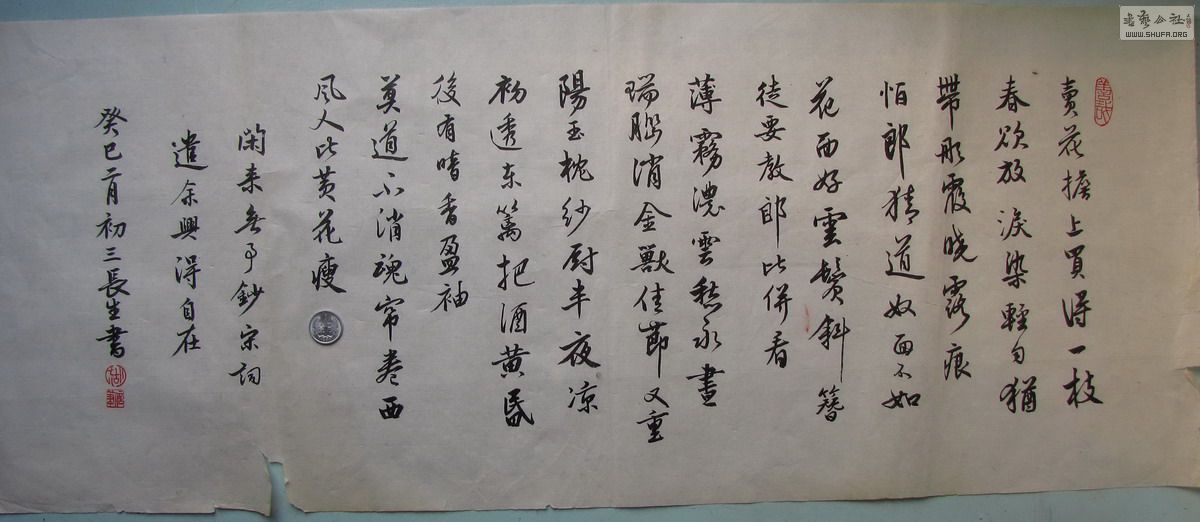 賣花擔上買得一枝
春欲放淚染輕勻猶
帶彤霞曉露痕
怕郎猜道奴面不如
花面好雲鬓斜簪
徒要教郎比併看
薄霧濃雲愁永晝
瑞腦消金獸佳節又重
陽玉枕紗厨半夜凉
初透東籬把酒黄昏
後有暗香盈袖
莫道不消魂帘卷西
风人比黄花瘦
閑来無事鈔宋詞
遣余興得自在
癸巳二月初三長生書
书艺公社
WWW.SHUFA.ORG